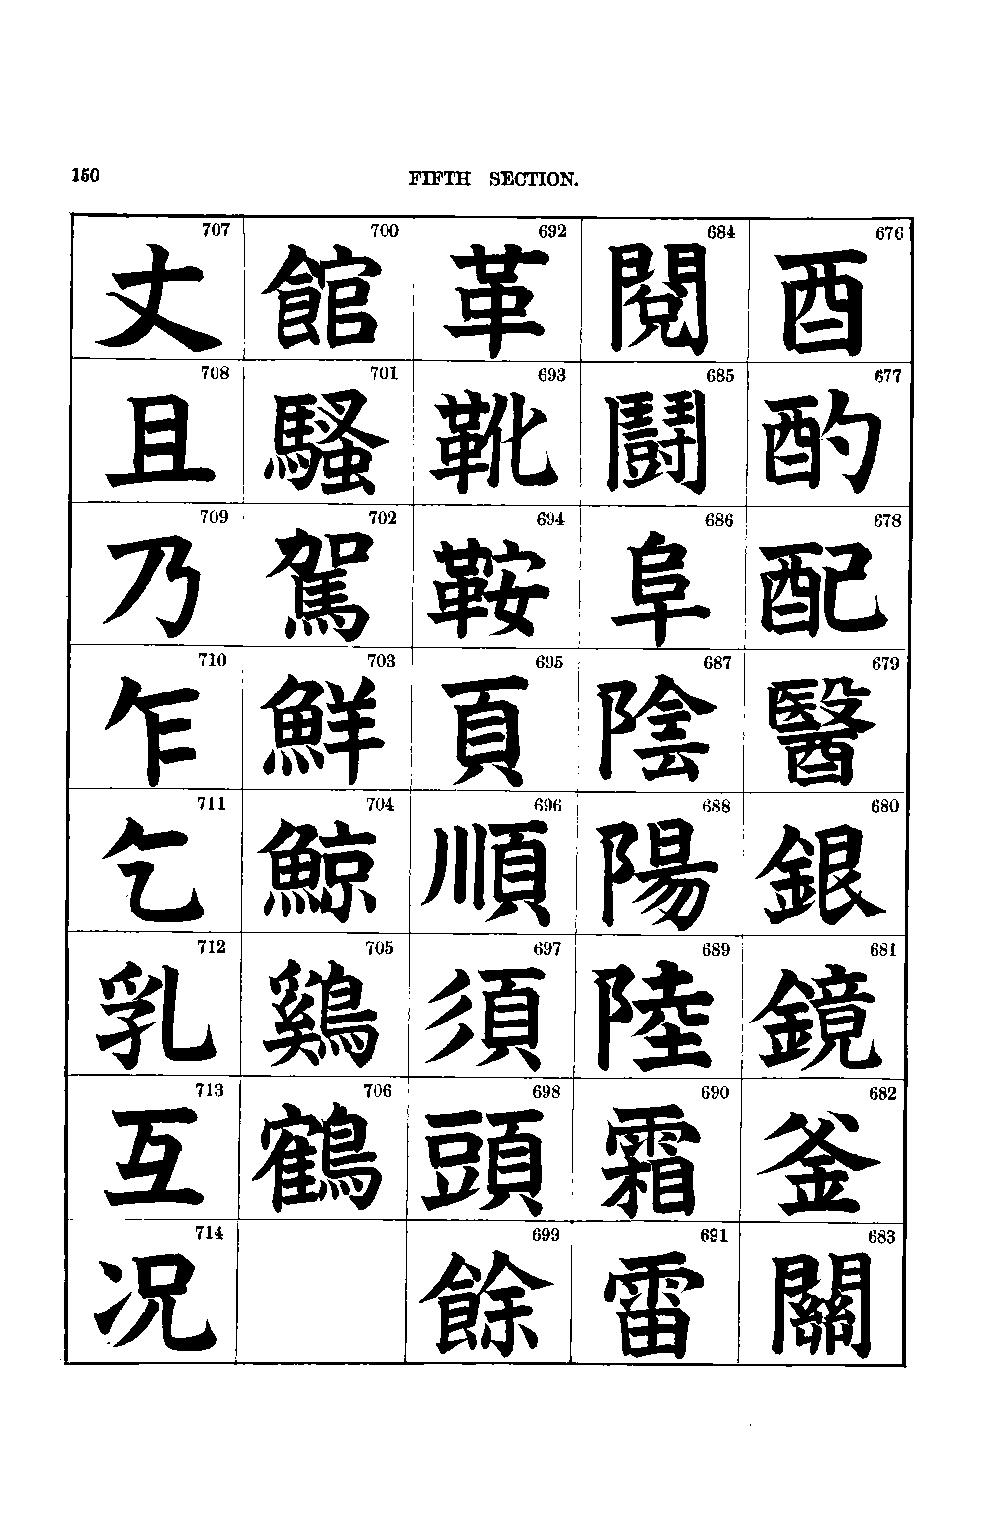 150 FIFTH SECTION.
707 700 692 684 676
丈 館 革 閲 酉
708 701 693 685 677
且 騷 靴 鬪 酌
709 702 694 686 678
乃 駕 鞍 阜 配
710 703 695 687 679
乍 鮮 頁 陰 醫
711 704 696 688 680
乞 鯨 順 陽 銀
712 705 697 689 681
乳 鷄 須 陸 鏡
713 706 698 690 682
互 鶴 頭 霜 釜
714 699 691 683
况 餘 雷 關